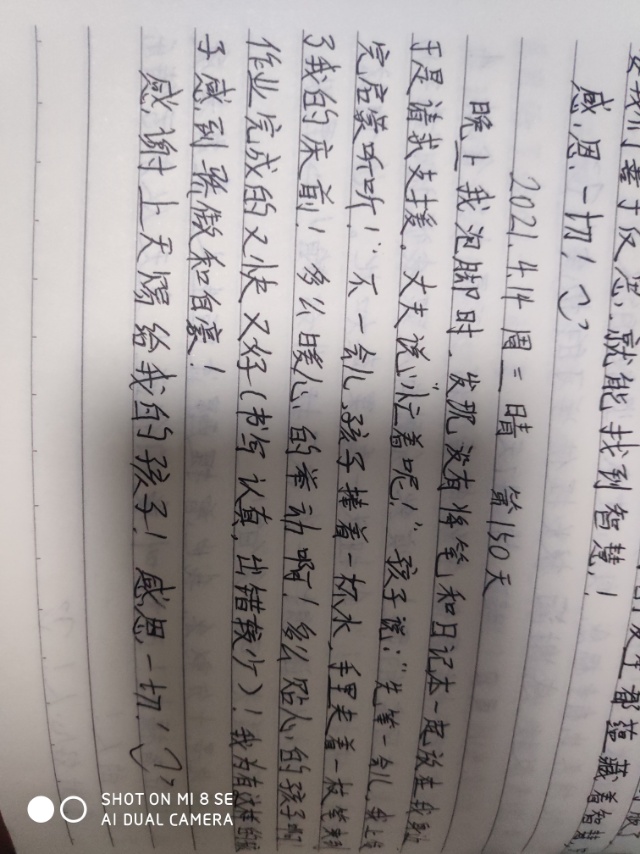 要我们善于反思，就能找到智慧！
感恩一切！
2021.4.14 周三 晴 第150天
晚上我泡脚时，发现没有将笔和日记本一起放在我身
于是请求支援，丈夫说"忙着呢！"孩子说："先等一会儿，我上
完启蒙听听！"不一会儿，孩子捧着一杯水，手里夹着一枝笔来到
了我的床前！多么暖心的举动啊！多么贴心的孩子啊
作业完成的又快又好（书写认真，出错较少）！我为有这样的孩
子感到骄傲和自豪！
感谢上天赐给我的孩子！感恩一切！
SHOT ON MI 8 SE
AI DUAL CAMERA